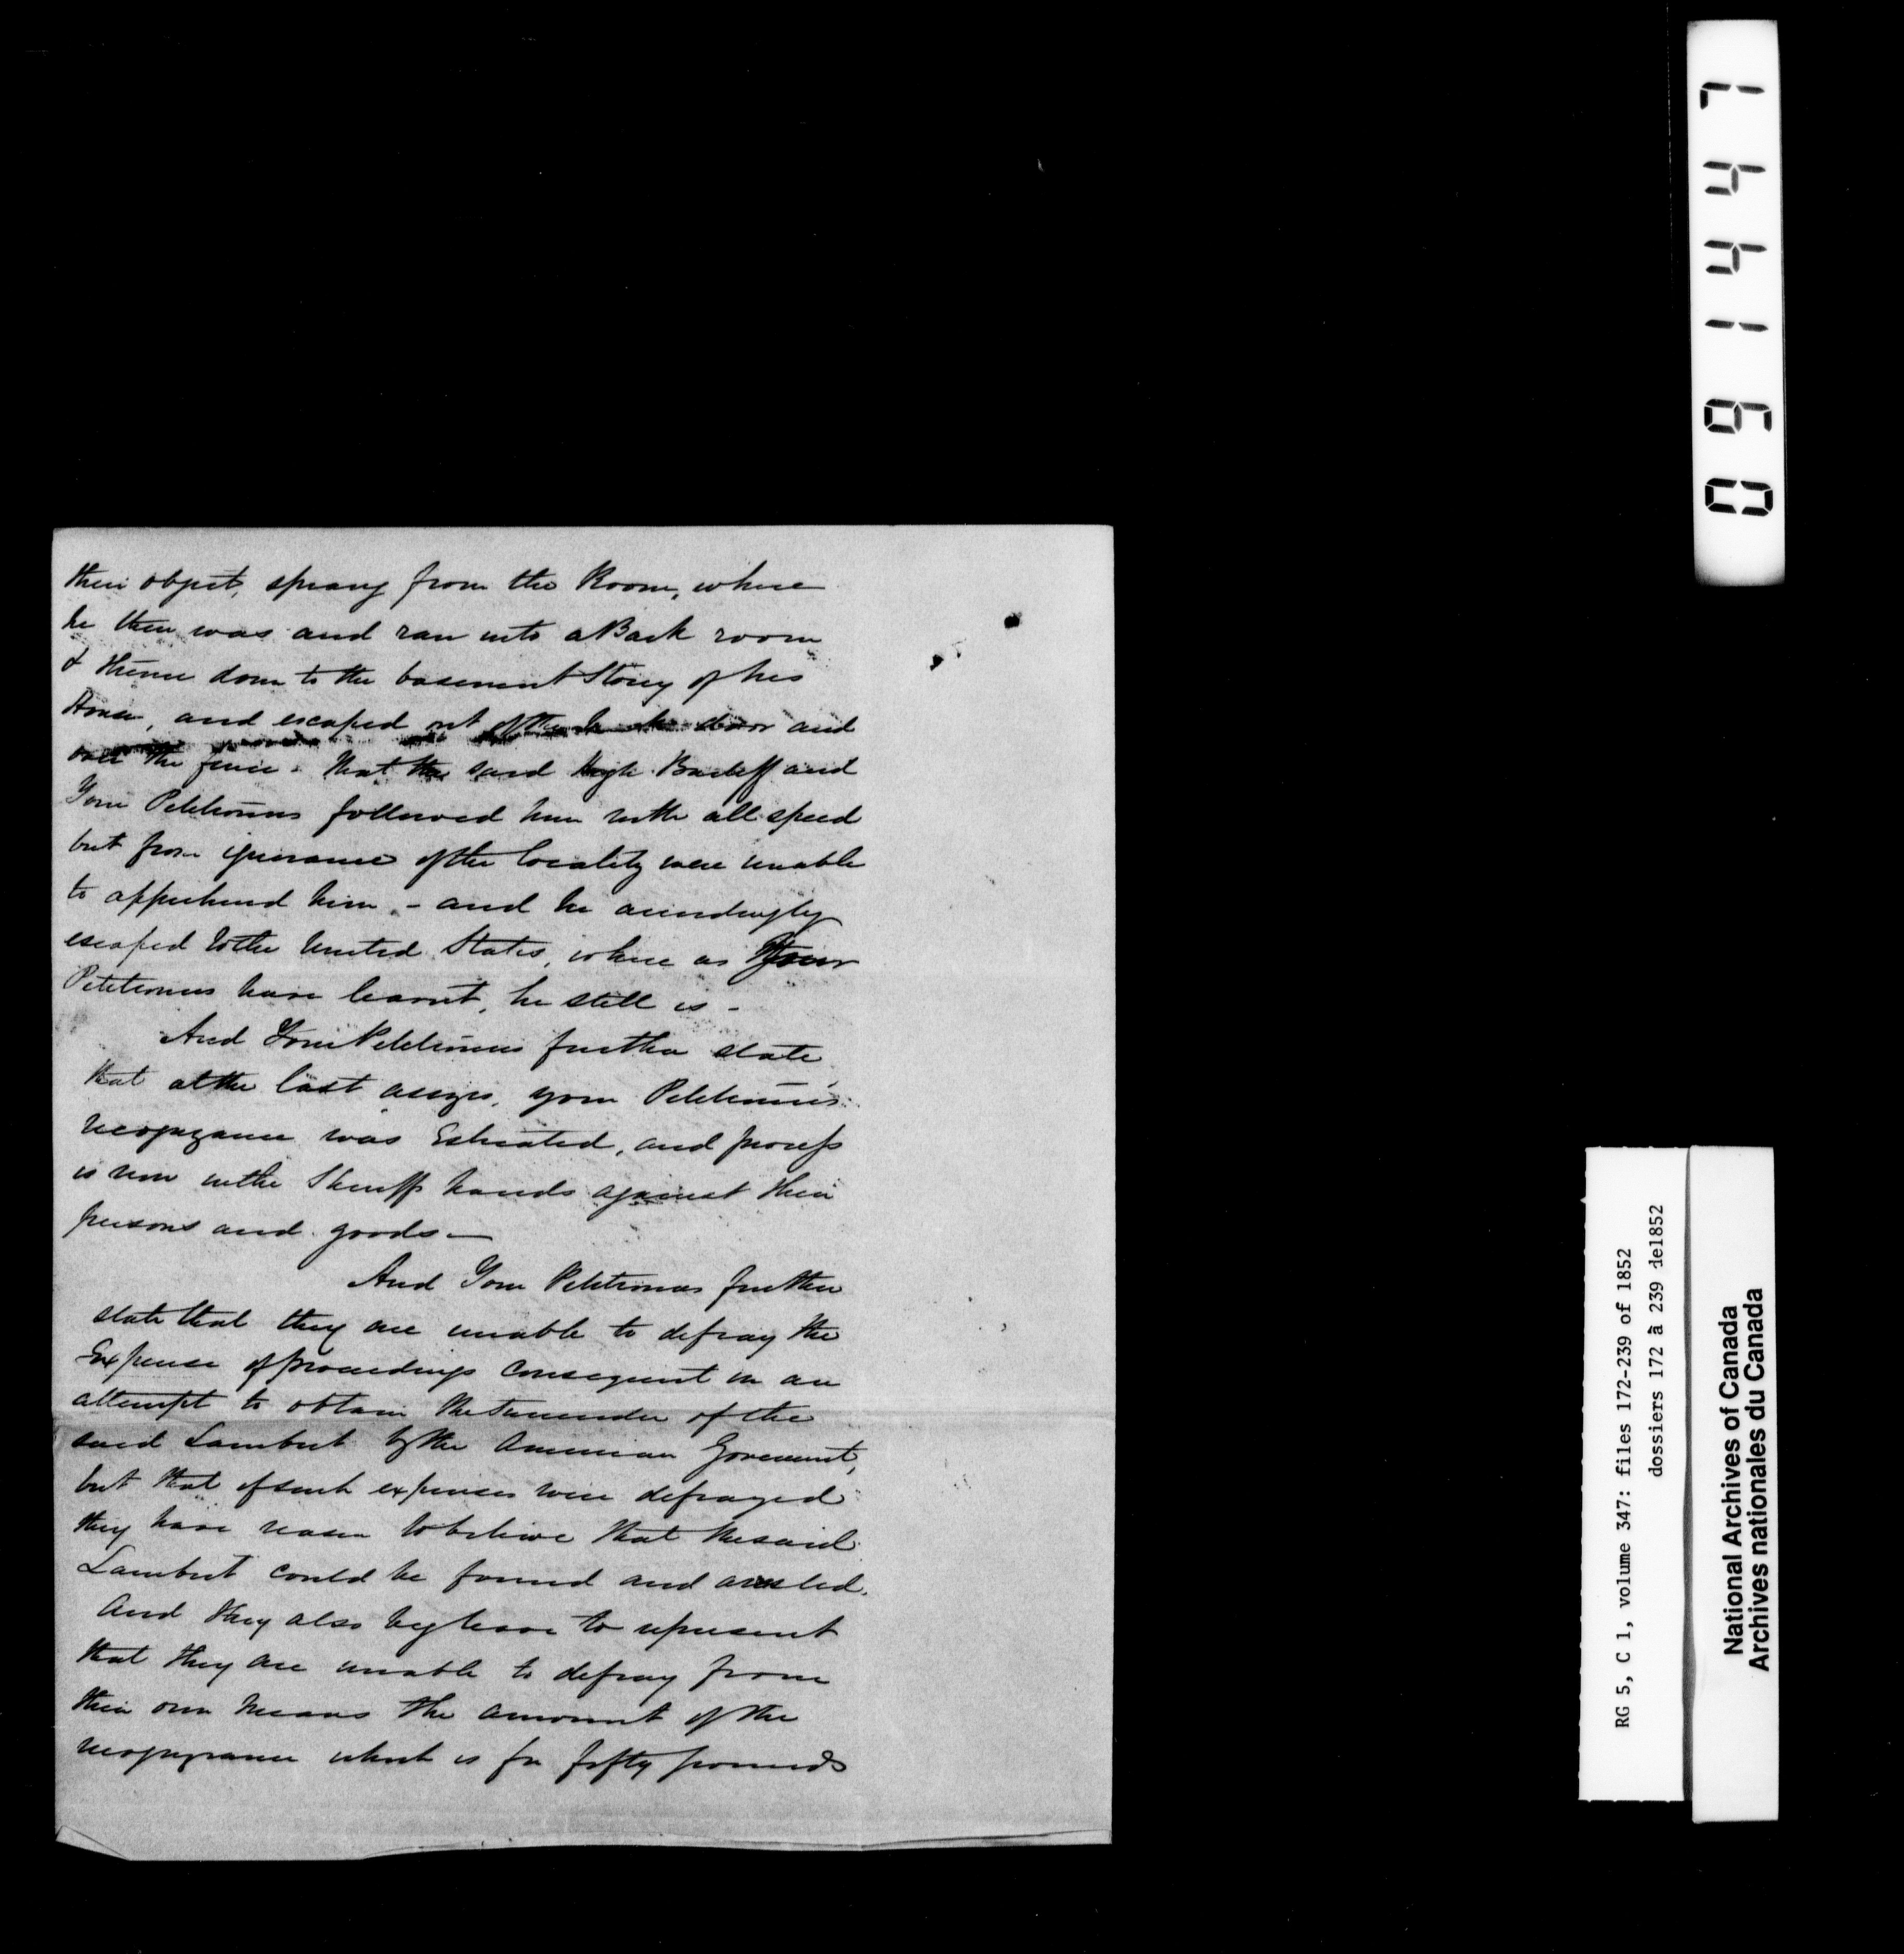 their object, sprang from the Room, where
he then was and ran into a Back room
& thence down to the basement Story of his
House, and escaped out of the door and
over the fence. That the said High Bailiff and
Your Petitioners followed him with all speed
but from ignorance of the locality were unable
to apprehend him. - and he accordingly
escaped to the United States, where as Your
Petitioners have learnt, he still is -
And Your Petitioners further state,
that at the last assizes, your Petitioners
recognizance was Estreated, and process
is now in the Sheriffs hands against their
persons and goods -
And Your Petitioners further
state that they are unable to defray the
Expense of proceedings consequent on an
attempt to obtain the Surrender of the
said Lambert by the American Goverment,
but that if such expenses were defrayed
they have reason to believe that the said
Lambert could be found and arrested.
And they also beg leave to represent
that they are unable to defray from
their own means the amount of the
recognizance which is for fifty pounds
091447
RG 5, C 1, volume 347: files 172-239 of 1852
dossiers 172 à 239 de1852
National Archives of Canada
Archives nationales du Canada